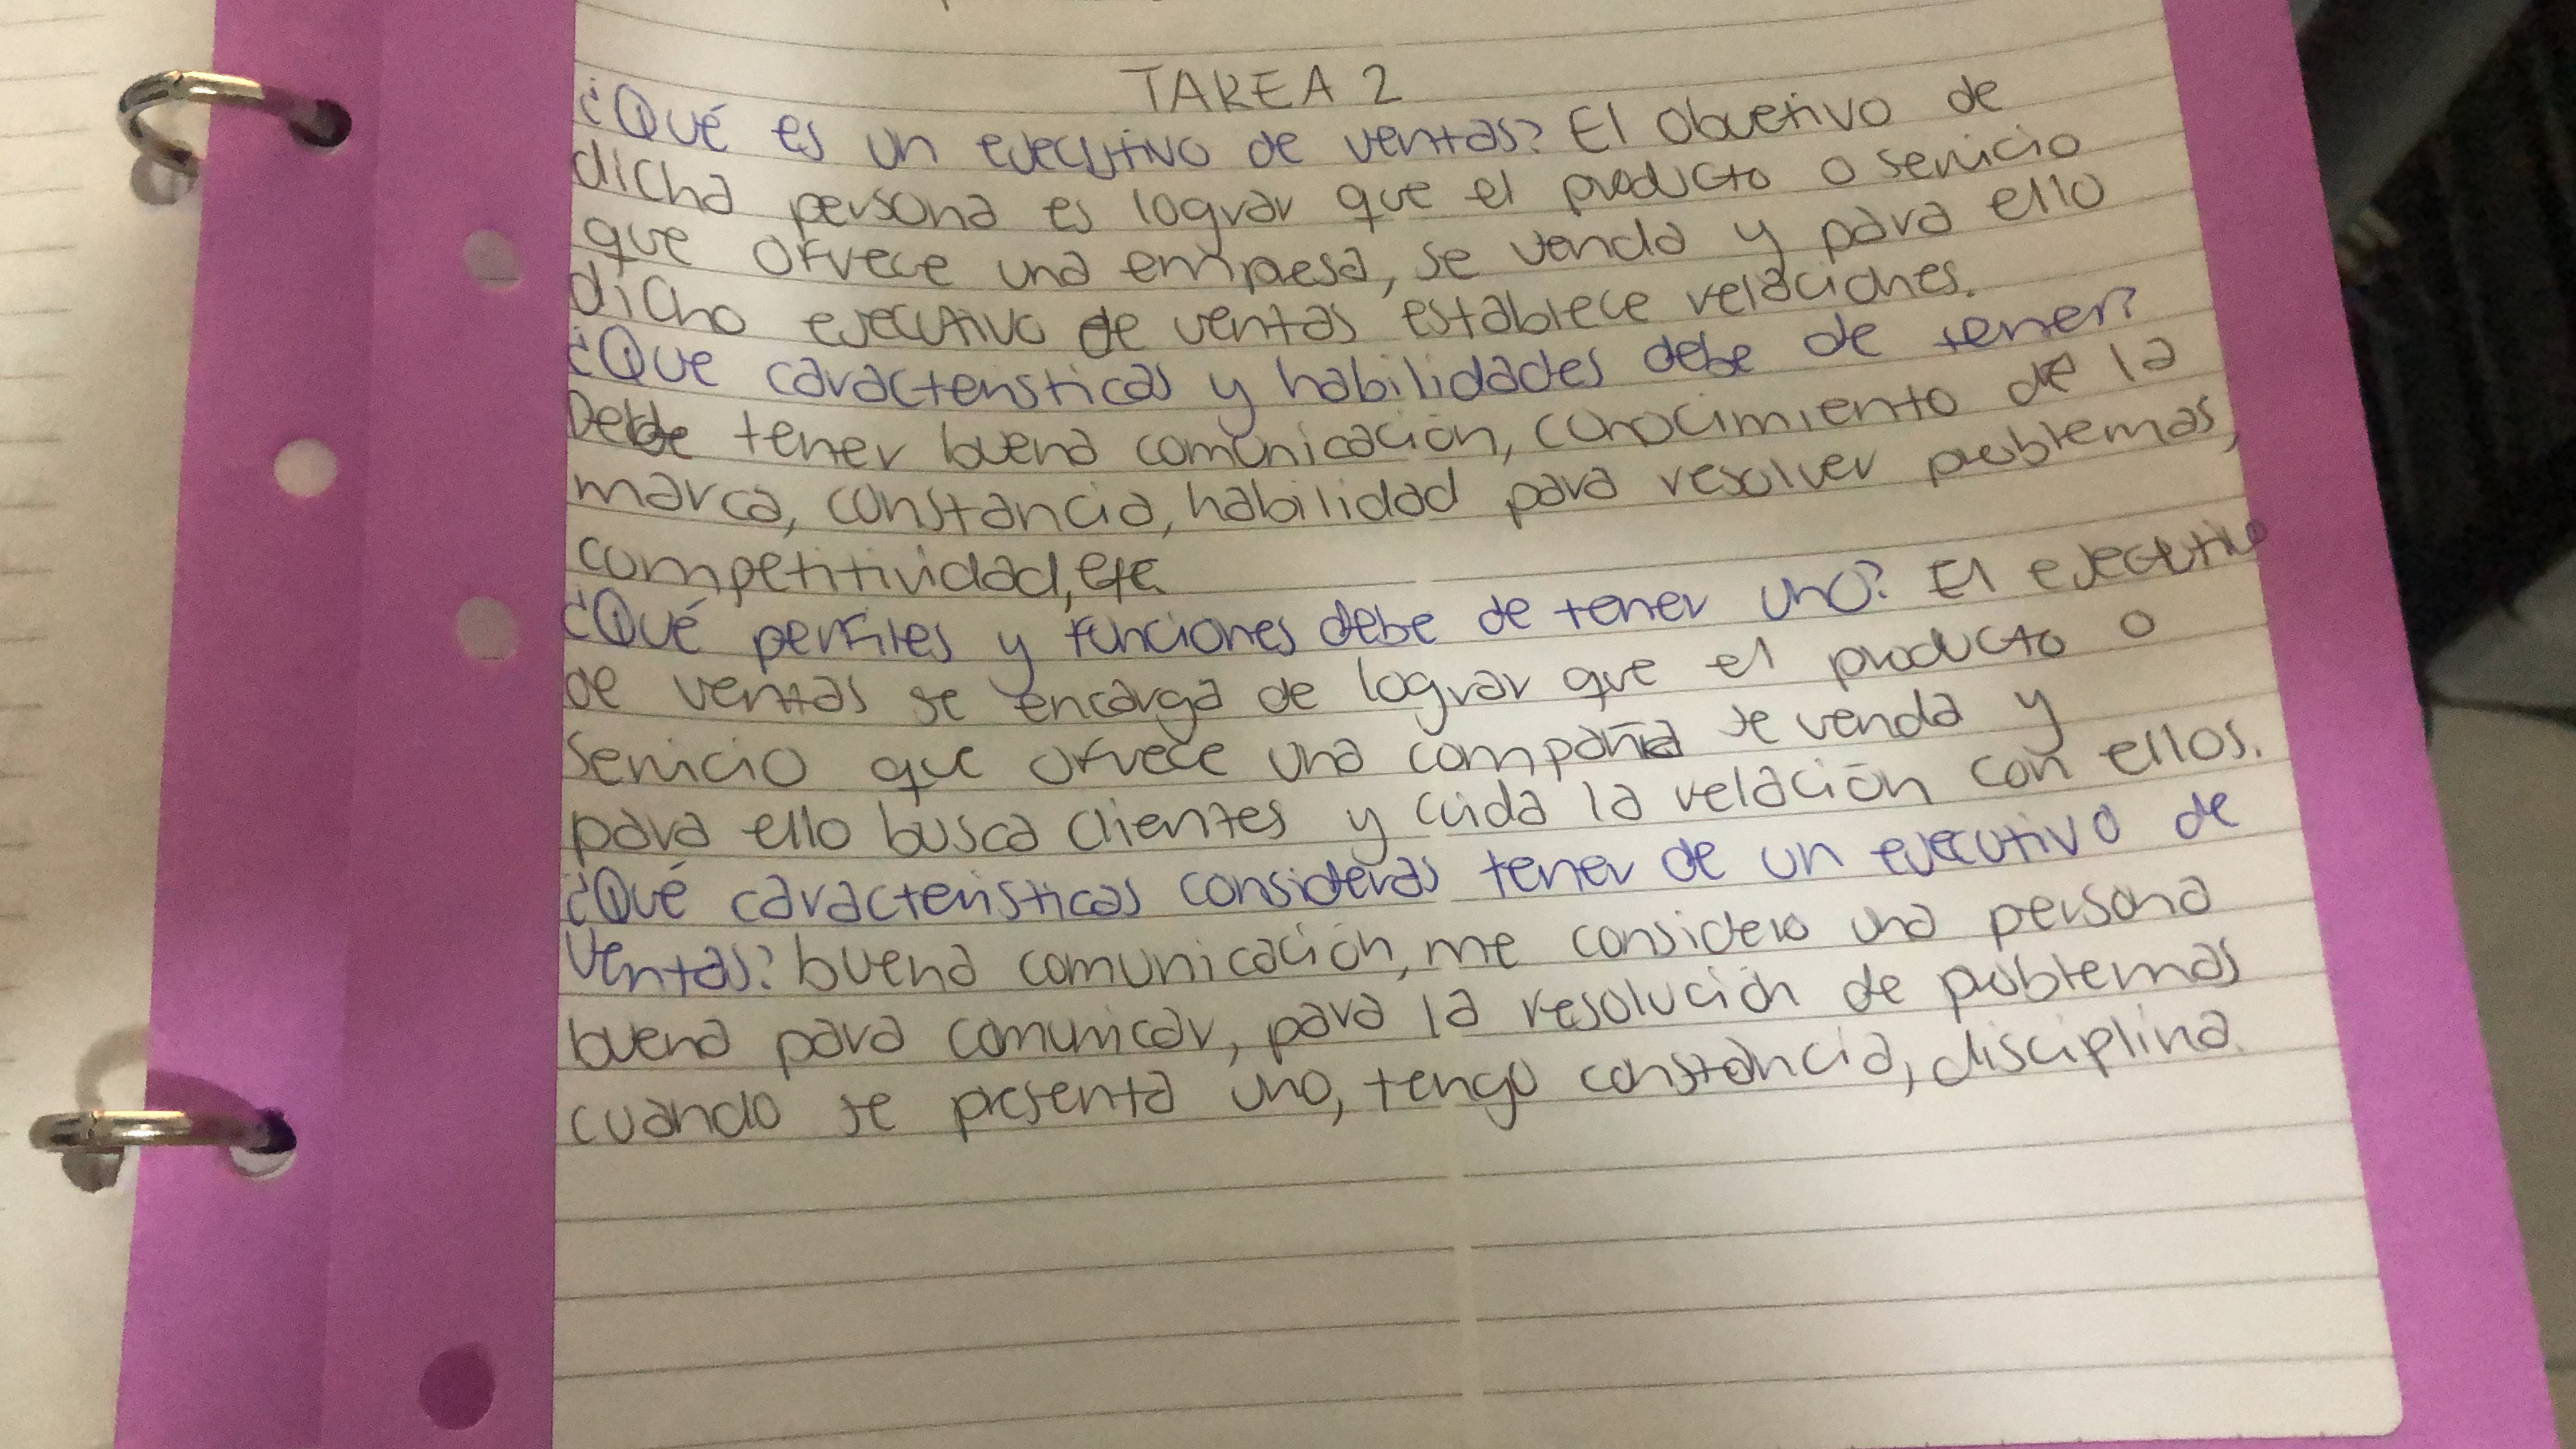 TAREA 2
¿Qué es un ejecutivo de ventas? El objetivo de
dicha persona es lograr que el producto o servicio
que ofrece una empresa, se venda y para ello
dicho ejecutivo de ventas establece relaciones.
¿Que características y habilidades debe de tener?
Debe tener buena comunicación, conocimiento de la
marca, constancia, habilidad para resolver problemas,
competitividad, etc.
¿Qué perfiles y funciones debe de tener uno? El ejecutivo
de ventas se encarga de lograr que el producto o
servicio que ofrece una compañia se venda y
para ello busca clientes y cuida la relación con ellos.
¿Qué características consideras tener de un ejecutivo de
ventas? buena comunicación, me considero una persona
buena para comunicar, para la resolución de problemas
cuando se presenta uno, tengo constancia, disciplina.